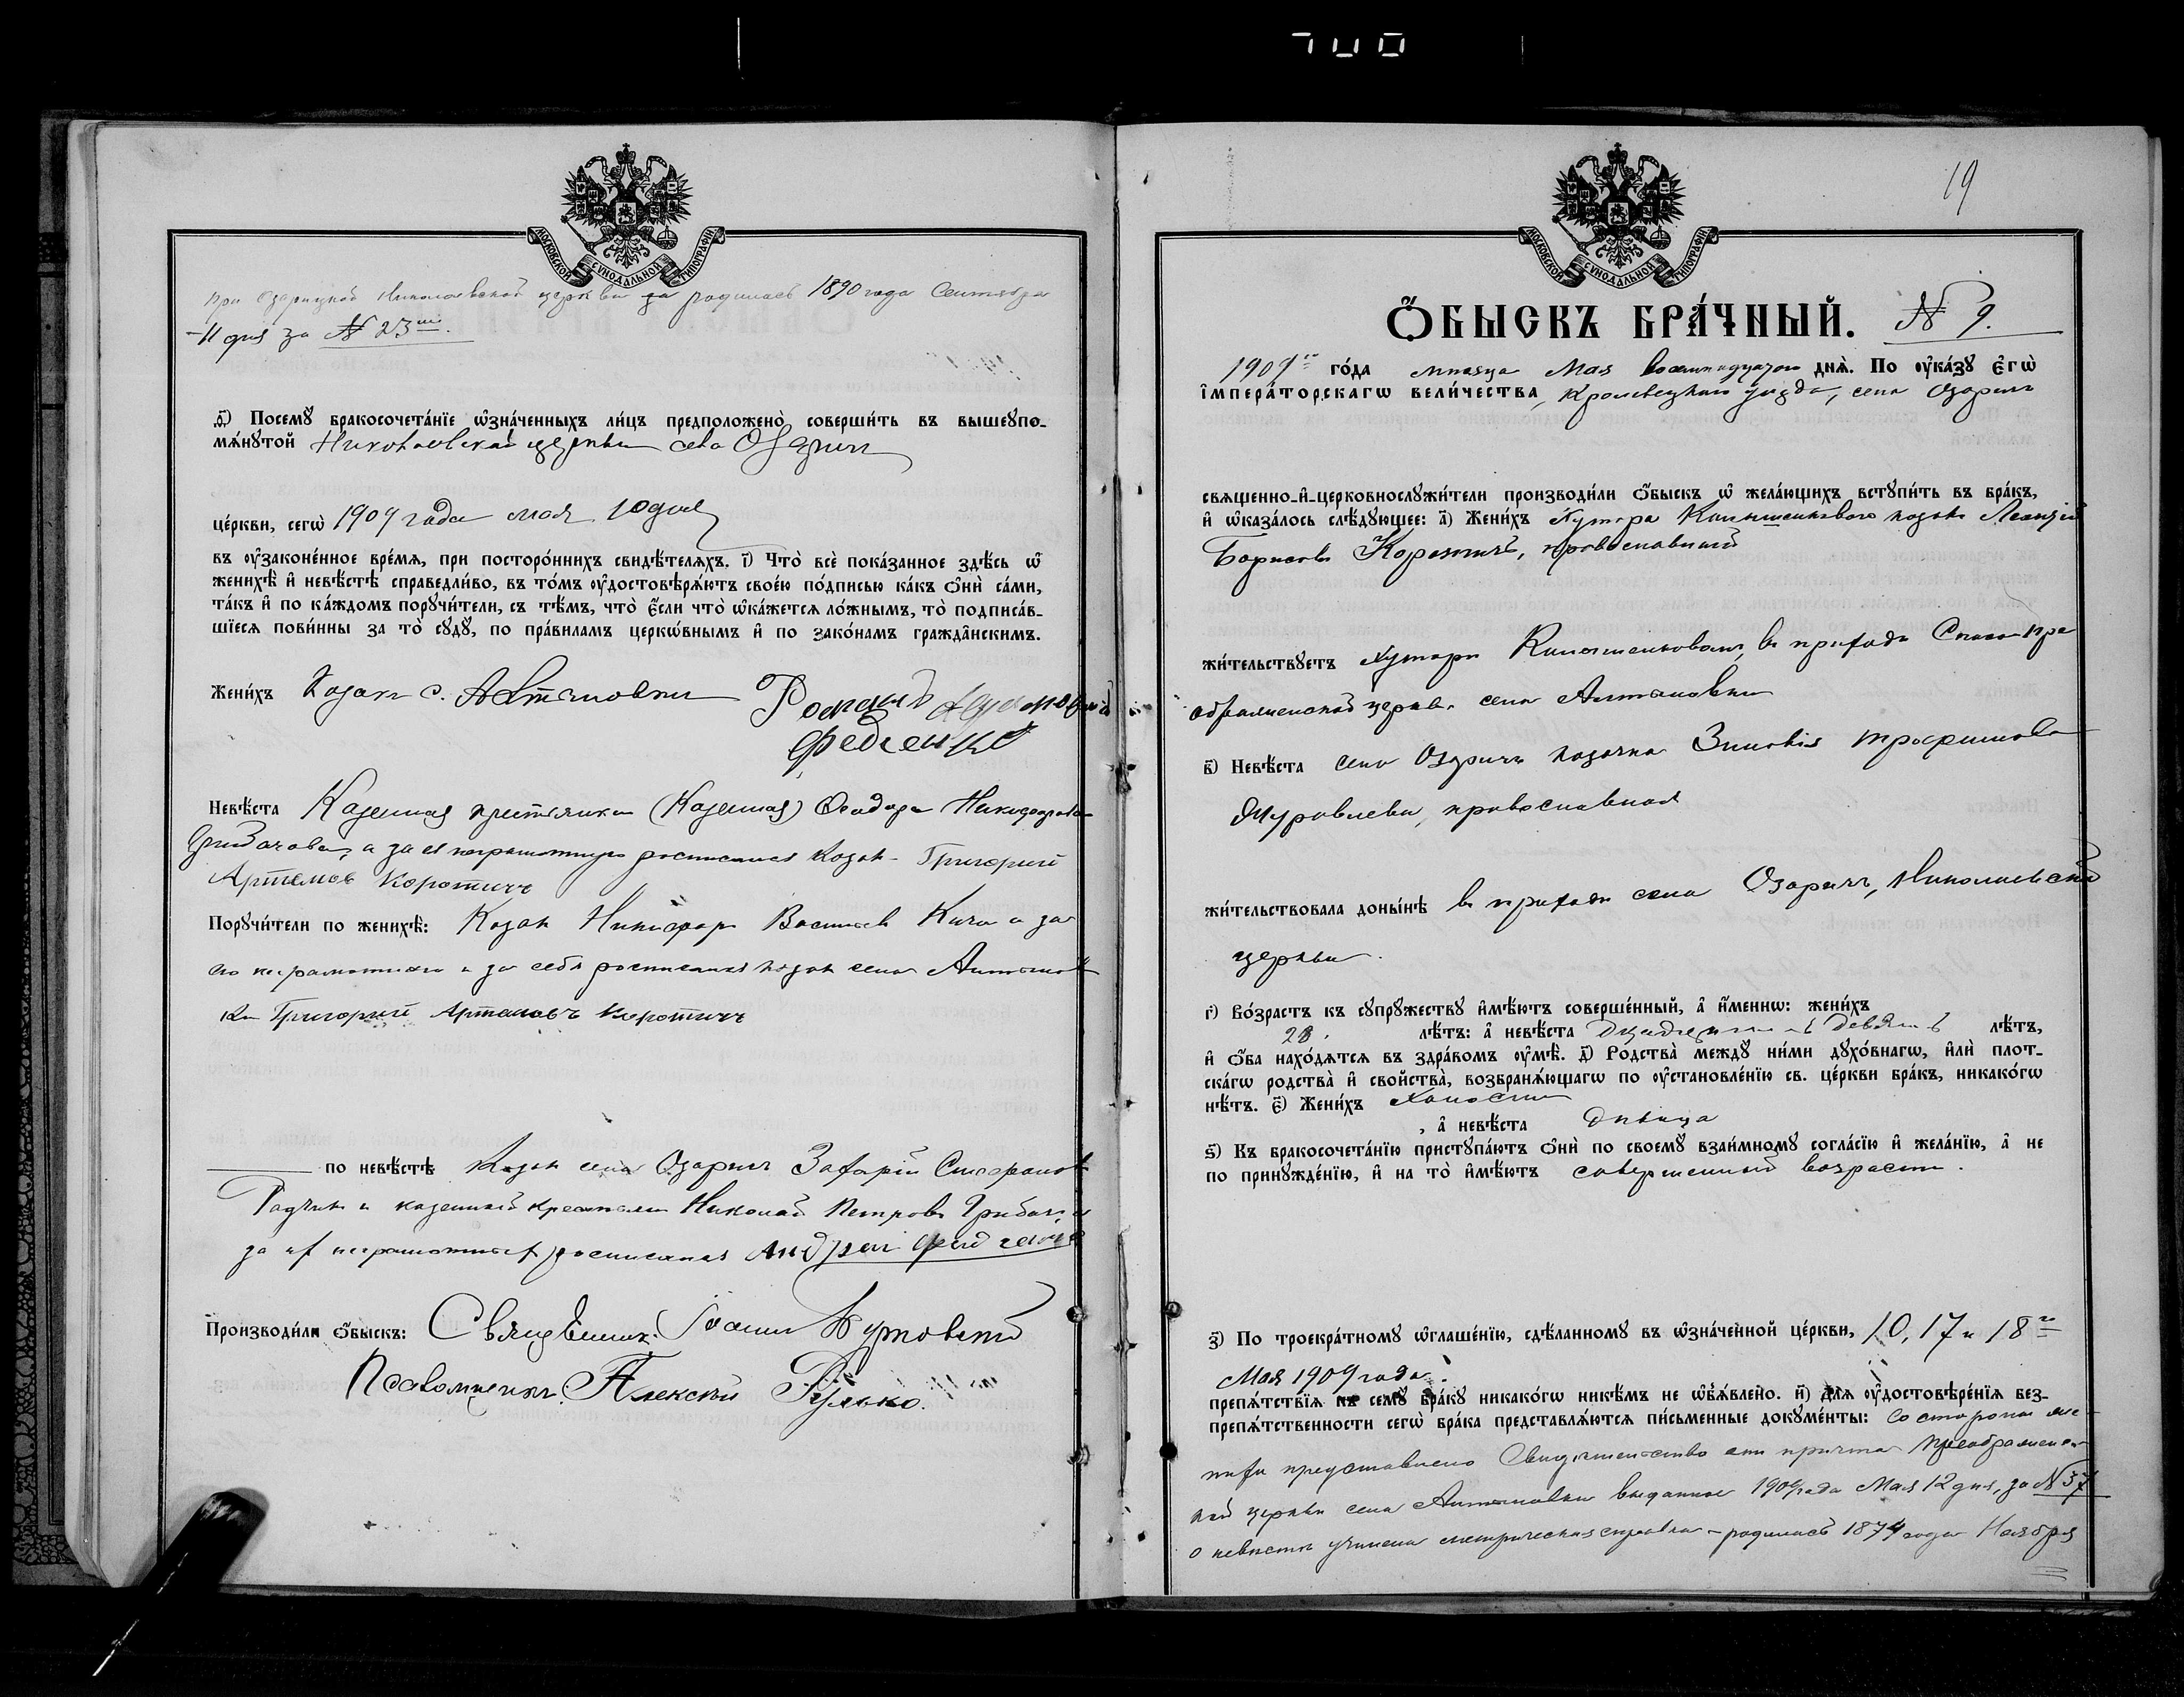 700
МОСКОВСКОЙ СУНОДАЛЬНОЙ ТИПОГРАФІИ
при Озарицкой Николаевской церкви за родилась 1890 года Сентября
11 дня за № 23
ѳ҃) Посемꙋ бракосочета́нїе ѡ҆зна́ченныхъ ли́цъ предположено̀ соверши́ть въ вышеꙋпо-
мѧ́нꙋтой Николаевской церкви села Озаричъ
це́ркви, сегѡ̀ 1909 года мая 10 дня
въ ᲂу҆законе́нное вре́мѧ, при посторо́ннихъ свидѣ́телѧхъ. і҃) Что̀ всѐ пока́занное здѣ́сь ѡ҆
женихѣ̀ и҆ невѣ́стѣ справедли́во, въ то́мъ ᲂу҆достовѣрѧ́ютъ свое́ю по́дписью ка́къ ѻ҆нѝ са́ми,
та́къ и҆ по ка́ждомъ порꙋчи́тели, съ тѣ́мъ, что̀ є҆́сли что̀ ѡ҆ка́жетсѧ ло́жнымъ, то̀ подписа́в-
шїесѧ пови́нны за то̀ сꙋдꙋ̀, по пра́виламъ церкѡ́внымъ и҆ по зако́намъ гражда̑нскимъ.
Жени́хъ Козакъ с. Алтыновки Романъ
Федченко
Невѣ́ста Казенная крестьянка (Казенная) Феодора Никифорова
Грибачова, а за ея неграмотную росписался козакъ Григорий
Артемовъ Коротичъ
Порꙋчи́тели по женихѣ̀: Козакъ Никифоръ Васильевъ Кича а за
его неграмотнаго и за себя росписался козакъ села Алтынов
ки Григорий Артемовъ Коротичъ
по невѣ́стѣ Козакъ села Озаричъ Захарій Стефановъ
и казенный крестьянинъ Николай Петровъ Грибачъ, а
за их неграмотных росписался Андрей
Производи́ли ѻ҆́быскъ: Священникъ Іоаннъ
Псаломщикъ Алексѣй Рулько.
19
МОСКОВСКОЙ СУНОДАЛЬНОЙ ТИПОГРАФІИ
Ѻ҆́БЫСКЪ БРА́ЧНЫЙ. № 9.
1909 го́да мѣсяца Мая восемнадцатого днѧ̀. По ᲂу҆ка́зꙋ є҆гѡ̀
і҆мпера́торскагѡ вели́чества, Кролевецкаго уѣзда, села Озаричъ
свѧщенно-и҆-церковнослꙋжи́тели производи́ли ѻ҆́быскъ ѡ҆ жела́ющихъ встꙋпи́ть въ бра́къ,
и҆ ѡ҆каза́лось слѣ́дꙋющее: а҃) Жени́хъ Хутора козакъ
Борисовъ Коротичъ, православный
жи́тельствꙋетъ хуторѣ въ приходѣ Спасо-Пре
ображенской церкви села Алтыновки
в҃) Невѣ́ста села Озаричъ козачка Зиновія Трофимова
Муравлева, православная
жи́тельствовала доны́нѣ въ приходѣ села Озаричъ, Николаевской
церкви.
г҃) Во́зрастъ къ сꙋпрꙋжествꙋ и҆мѣ́ютъ соверше́нный, а҆ и҆́меннѡ: жени́хъ
лѣ́тъ: а҆ невѣ́ста девять лѣ́тъ,
и҆ ѻ҆́ба нахо́дѧтсѧ въ здра́вомъ ᲂу҆мѣ̀. д҃) Родства̀ междꙋ̀ ни́ми дꙋхо́внагѡ, и҆лѝ плот-
ска́гѡ родства̀ и҆ сво́йства̀, возбранѧ́ющагѡ по ᲂу҆становле́нїю св. це́ркви бра́къ, никако́гѡ
нѣ́тъ. є҃) Жени́хъ Холостъ
, а҆ невѣ́ста Дѣвица
ѕ҃) Къ бракосочета́нїю пристꙋпа́ютъ ѻ҆нѝ по своемꙋ̀ взаи́мномꙋ согла́сїю и҆ жела́нїю, а҆ не
по принꙋжде́нїю, и҆ на то̀ и҆мѣ́ютъ совершенный возрастъ.
з҃) По троекра́тномꙋ ѡ҆глаше́нїю, сдѣ́ланномꙋ въ ѡ҆зна́ченной це́ркви, 10, 17 и 18го
Мая 1909 года.
препѧ́тствїѧ къ семꙋ̀ бра́кꙋ никако́гѡ никѣ́мъ не ѡ҆б̾ѧ́влено. и҃) Длѧ ᲂу҆достовѣ́ренїѧ без-
препѧ́тственности сегѡ̀ бра́ка представлѧ́ютсѧ пи́сьменные докꙋме́нты: Со стороны же-
ниха представлено Свидѣтельство отъ причта Преображенс-
кой церкви села Алтыновки выданное 1909 года Мая 12 дня, за № 37
о невѣстѣ учинена метрическая справка – родилась 1879 года Ноября